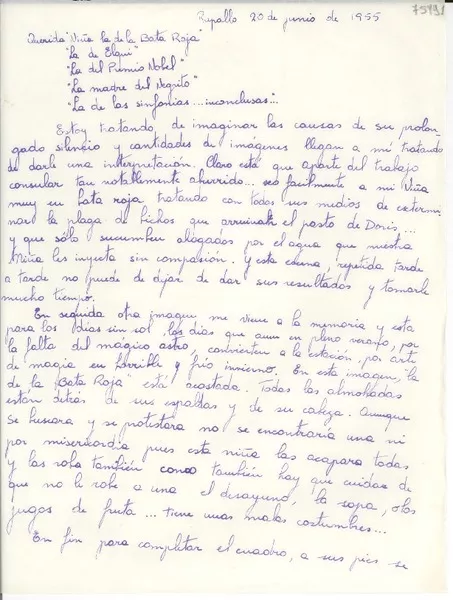 Rapallo 20 de junio de 1955
7519
Querida "Niña la de la Bata Roja"
"La de Elqui"
"La del Premio Nobel"
"La madre del Negrito"
"La de las sinfonías... inconclusas"...
Estoy tratando de imaginar las causas de su prolon-
gado silencio y cantidades de imágenes llegan a mi tratando
de darle una interpretación. Claro está que aparte del trabajo
consular tan notablemente aburrido... veo facilmente a mi Niña
muy en bata roja tratando con todos sus medios de extermi-
nar la plaga de bichos que arruinan el pasto de Doris...
y que sólo sucumben ahogados por el agua que nuestra
Niña les inyecta sin compasión. Y esta escena, repetida tarde
a tarde no puede de dijar de dar sus resultados y tomarle
mucho tiempo.
En seguida otra imagen me viene a la memoria y esta
para los días sin sol, los días que aun en pleno verano, por
la falta del mágico astro, convierten a la estación, por arte
de magia en horrible y frío invierno. En esta imagen, "la
de la Bata Roja" está acostada. Todas las almohadas
están detrás de sus espaldas y de su cabeza. Aunque
se buscara y se protestara no se encontraría una ni
por misericordia pues esta niña las acapara todas
y las roba también como también hay que cuidar de
que no le robe a una el desayuno, la sopa, los
jugos de fruta... tiene unas malas costumbres...
En fin para completar el cuadro, a sus pies se